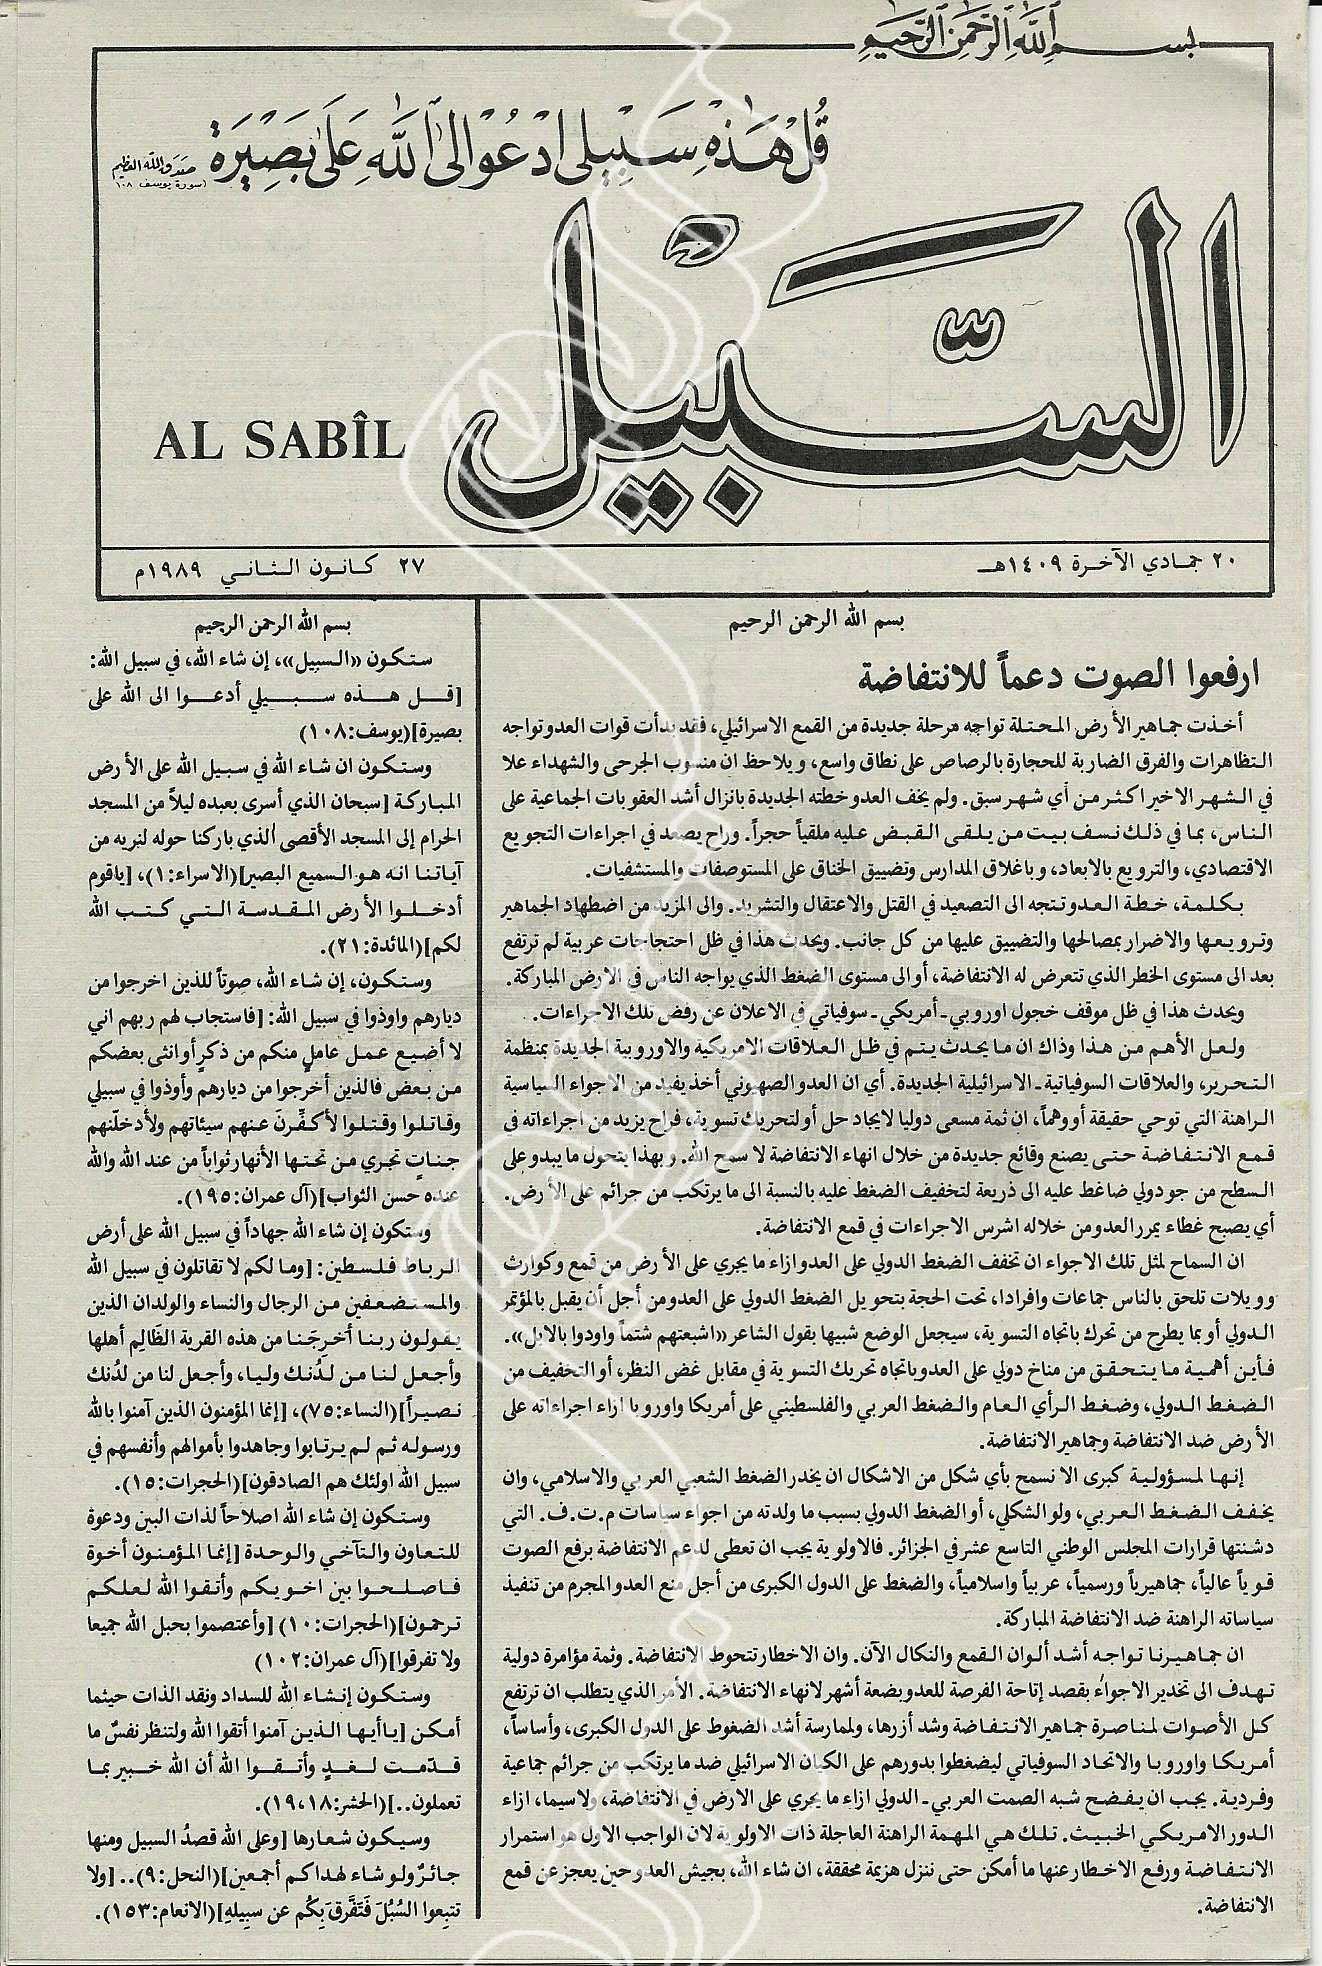 بسم الله الرحمن الرحيم
قُلْ هَذِهِ سَبِيلِى ادْعُوْا الى اللَّهِ عَلَى بَصِيْرَة
صدق الله العظيم
(سورة يوسف ١٠٨)
السَّبيْل
AL SABÎL
٢٠ جمادي الآخرة ١٤٠٩هـ
٢٧ كانون الثاني ١٩٨٩م
بسم الله الرحمن الرحيم
ارفعوا الصوت دعماً للانتفاضة
أخذت جماهير الأرض المحتلة تواجه مرحلة جديدة من القمع الاسرائيلي، فقد بدأت قوات العدو تواجه
التظاهرات والفرق الضاربة للحجارة بالرصاص على نطاق واسع، ويلاحظ ان منسوب الجرحى والشهداء علا
في الشهر الاخير اكثر من أي شهر سبق. ولم يخف العدو خطته الجديدة بانزال أشد العقوبات الجماعية على
الناس، بما في ذلك نسف بيت من يلقى القبض عليه ملقياً حجراً. وراح يصعد في اجراءات التجويع
الاقتصادي، والترويع بالابعاد، وباغلاق المدارس وتضييق الخناق على المستوصفات والمستشفيات.
بكلمة، خطة العدو تتجه الى التصعيد في القتل والاعتقال والتشريد. والى المزيد من اضطهاد الجماهير
وترويعها والاضرار بمصالحها والتضييق عليها من كل جانب. ويحدث هذا في ظل احتجاجات عربية لم ترتفع
بعد الى مستوى الخطر الذي تتعرض له الانتفاضة، أو الى مستوى الضغط الذي يواجه الناس في الارض المباركة.
ويحدث هذا في ظل موقف خجول اوروبي ـ أمريكي ـ سوفياتي في الاعلان عن رفض تلك الاجراءات.
ولعل الأهم من هذا وذاك ان ما يحدث يتم في ظل العلاقات الامريكية والاوروبية الجديدة بمنظمة
التحرير، والعلاقات السوفياتية ـ الاسرائيلية الجديدة. أي ان العدو الصهيوني أخذ يفيد من الاجواء السياسية
الراهنة التي توحي حقيقة أو وهماً، ان ثمة مسعى دوليا لايجاد حل أو لتحريك تسوية، فراح يزيد من اجراءاته في
قمع الانتفاضة حتى يصنع وقائع جديدة من خلال انهاء الانتفاضة لا سمح الله. وبهذا يتحول ما يبدو على
السطح من جو دولي ضاغط عليه الى ذريعة لتخفيف الضغط عليه بالنسبة الى ما يرتكب من جرائم على الأرض.
أي يصبح غطاء يمرر العدو من خلاله اشرس الاجراءات في قمع الانتفاضة.
ان السماح لمثل تلك الاجواء ان تخفف الضغط الدولي على العدو ازاء ما يجري على الأرض من قمع وكوارث
وويلات تلحق بالناس جماعات وافرادا، تحت الحجة بتحويل الضغط الدولي على العدو من أجل أن يقبل بالمؤتمر
الدولي أو بما يطرح من تحرك باتجاه التسوية، سيجعل الوضع شبيها بقول الشاعر «اشبعتهم شتماً واودوا بالابل».
فأين أهمية ما يتحقق من مناخ دولي على العدو باتجاه تحريك التسوية في مقابل غض النظر، أو التخفيف من
الضغط الدولي، وضغط الرأي العام والضغط العربي والفلسطيني على أمريكا واوروبا ازاء اجراءاته على
الأرض ضد الانتفاضة وجماهير الانتفاضة.
إنها لمسؤولية كبرى الا نسمح بأي شكل من الاشكال ان يخدر الضغط الشعبي العربي والاسلامي، وان
يخفف الضغط العربي، ولو الشكلي، أو الضغط الدولي بسبب ما ولدته من اجواء سياسات م.ت.ف. التي
دشنتها قرارات المجلس الوطني التاسع عشر في الجزائر. فالاولوية يجب ان تعطى لدعم الانتفاضة برفع الصوت
قوياً عالياً، جماهيرياً ورسمياً، عربياً واسلامياً، والضغط على الدول الكبرى من أجل منع العدو المجرم من تنفيذ
سياساته الراهنة ضد الانتفاضة المباركة.
ان جماهيرنا تواجه أشد ألوان القمع والنكال الآن. وان الاخطار تتحوط الانتفاضة. وثمة مؤامرة دولية
تهدف الى تخدير الاجواء بقصد إتاحة الفرصة للعدو بضعة أشهر لانهاء الانتفاضة. الأمر الذي يتطلب ان ترتفع
كل الأصوات لمناصرة جماهير الانتفاضة وشد أزرها، ولممارسة أشد الضغوط على الدول الكبرى، وأساساً،
أمريكا واوروبا والاتحاد السوفياتي ليضغطوا بدورهم على الكيان الاسرائيلي ضد ما يرتكب من جرائم جماعية
وفردية. يجب ان يفضح شبه الصمت العربي ـ الدولي ازاء ما يجري على الارض في الانتفاضة، ولاسيما، ازاء
الدور الامريكي الخبيث. تلك هي المهمة الراهنة العاجلة ذات الاولوية لان الواجب الاول هو استمرار
الانتفاضة ورفع الاخطار عنها ما أمكن حتى ننزل هزيمة محققة، ان شاء الله، بجيش العدو حين يعجز عن قمع
الانتفاضة.
بسم الله الرحمن الرحيم
ستكون «السبيل»، إن شاء الله، في سبيل الله:
[قل هذه سبيلي أدعوا الى الله على
بصيرة](يوسف:١٠٨)
وستكون ان شاء الله في سبيل الله على الأرض
المباركة [سبحان الذي أسرى بعبده ليلاً من المسجد
الحرام إلى المسجد الأقصى الذي باركنا حوله لنريه من
آياتنا انه هو السميع البصير](الاسراء:١)، [ياقوم
أدخلوا الأرض المقدسة التي كتب الله
لكم](المائدة:٢١).
وستكون، إن شاء الله، صوتاً للذين اخرجوا من
ديارهم واوذوا في سبيل الله: [فاستجاب لهم ربهم اني
لا أضيع عمل عاملٍ منكم من ذكرٍ أو انثى بعضكم
من بعض فالذين أخرجوا من ديارهم وأوذوا في سبيلي
وقاتلوا وقتلوا لأكفِّرنَ عنهم سيئاتهم ولأدخلنّهم
جناتٍ تجري من تحتها الأنهار ثواباً من عند الله والله
عنده حسن الثواب](آل عمران:١٩٥).
وستكون إن شاء الله جهاداً في سبيل الله على أرض
الرباط فلسطين: [وما لكم لا تقاتلون في سبيل الله
والمستضعفين من الرجال والنساء والولدان الذين
يقولون ربنا أخرجَنا من هذه القرية الظَالِم أهلها
وأجعل لنا من لدُنك وليا، وأجعل لنا من لدُنك
نصيراً](النساء:٧٥)، [إنما المؤمنون الذين آمنوا بالله
ورسوله ثم لم يرتابوا وجاهدوا بأموالهم وأنفسهم في
سبيل الله اولئك هم الصادقون](الحجرات:١٥).
وستكون إن شاء الله اصلاحاً لذات البين ودعوة
للتعاون والتآخي والوحدة [إنما المؤمنون أخوة
فاصلحوا بين اخويكم وأتقوا الله لعلكم
ترحمون](الحجرات:١٠) [وأعتصموا بحبل الله جميعا
ولا تفرقوا](آل عمران:١٠٢)
وستكون إنشاء الله للسداد ونقد الذات حيثما
أمكن [ياأيها الذين آمنوا أتقوا الله ولتنظر نفسٌ ما
قدّمت لغدٍ وأتقوا الله أن الله خبير بما
تعملون..](الحشر:١٨،١٩).
وسيكون شعارها [وعلى الله قصدُ السبيل ومنها
جائرٌ ولو شاء لهداكم أجمعين](النحل:٩).. [ولا
تتبِعوا السُبُلَ فَتَفَّرقَ بِكُم عن سبيلهِ](الانعام:١٥٣).